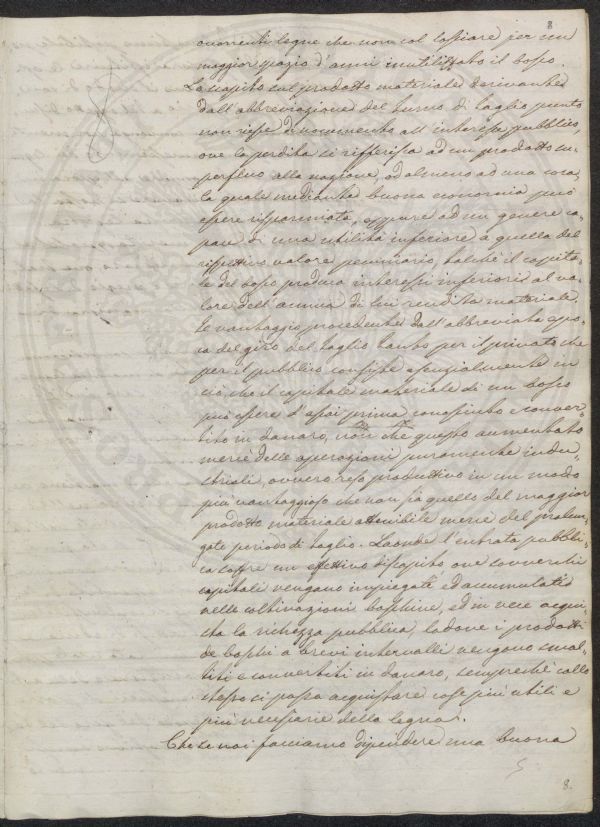 8
occorrenti legne che non col lasciare per un
maggior spazio d'anni inutilizzato il bosco.
Lo scapito sul prodotto materiale derivante
dall'abbreviazione del turno di taglio punto
non riesce di nocumento all'interesse pubblico,
ove la perdita si rifferisca ad un prodotto su-
perfluo alla nazione, od almeno ad una cosa,
la quale mediante buona economia può
essere risparmiata, oppure ad un genere ca-
pace di una utilità inferiore a quella del
rispettivo valore pecuniario, talché il capita-
le del bosco produca interessi inferiori al va-
lore dell'annua di lui rendita materiale.
Il vantaggio procedente dall'abbreviata epo-
ca del giro del taglio tanto per il privato che
per il pubblico consiste essenzialmente in
ciò, che il capitale materiale di un bosco
può essere d'assai prima conseguito e conver-
tito in danaro, non che questo aumentato
mercè delle operazioni puramente indu-
striali, ovvero reso produttivo in un modo
più vantaggioso che non sia quello del maggior
prodotto materiale attenibile mercè del prolun-
gato periodo di taglio. Laonde l'entrata pubbli-
ca soffre un effettivo discapito ove convenienti
capitali vengano impiegati ed accumulati
nelle coltivazioni boschive, ed in vece acqui-
sta la richezza pubblica, ladove i prodotti
de boschi a brevi intervalli vengono smal-
titi e convertiti in danaro, sempreché collo
stesso si possa acquistare cose più utili e
più necessarie della legna.
Che se noi facciamo dipendere una buona
8.